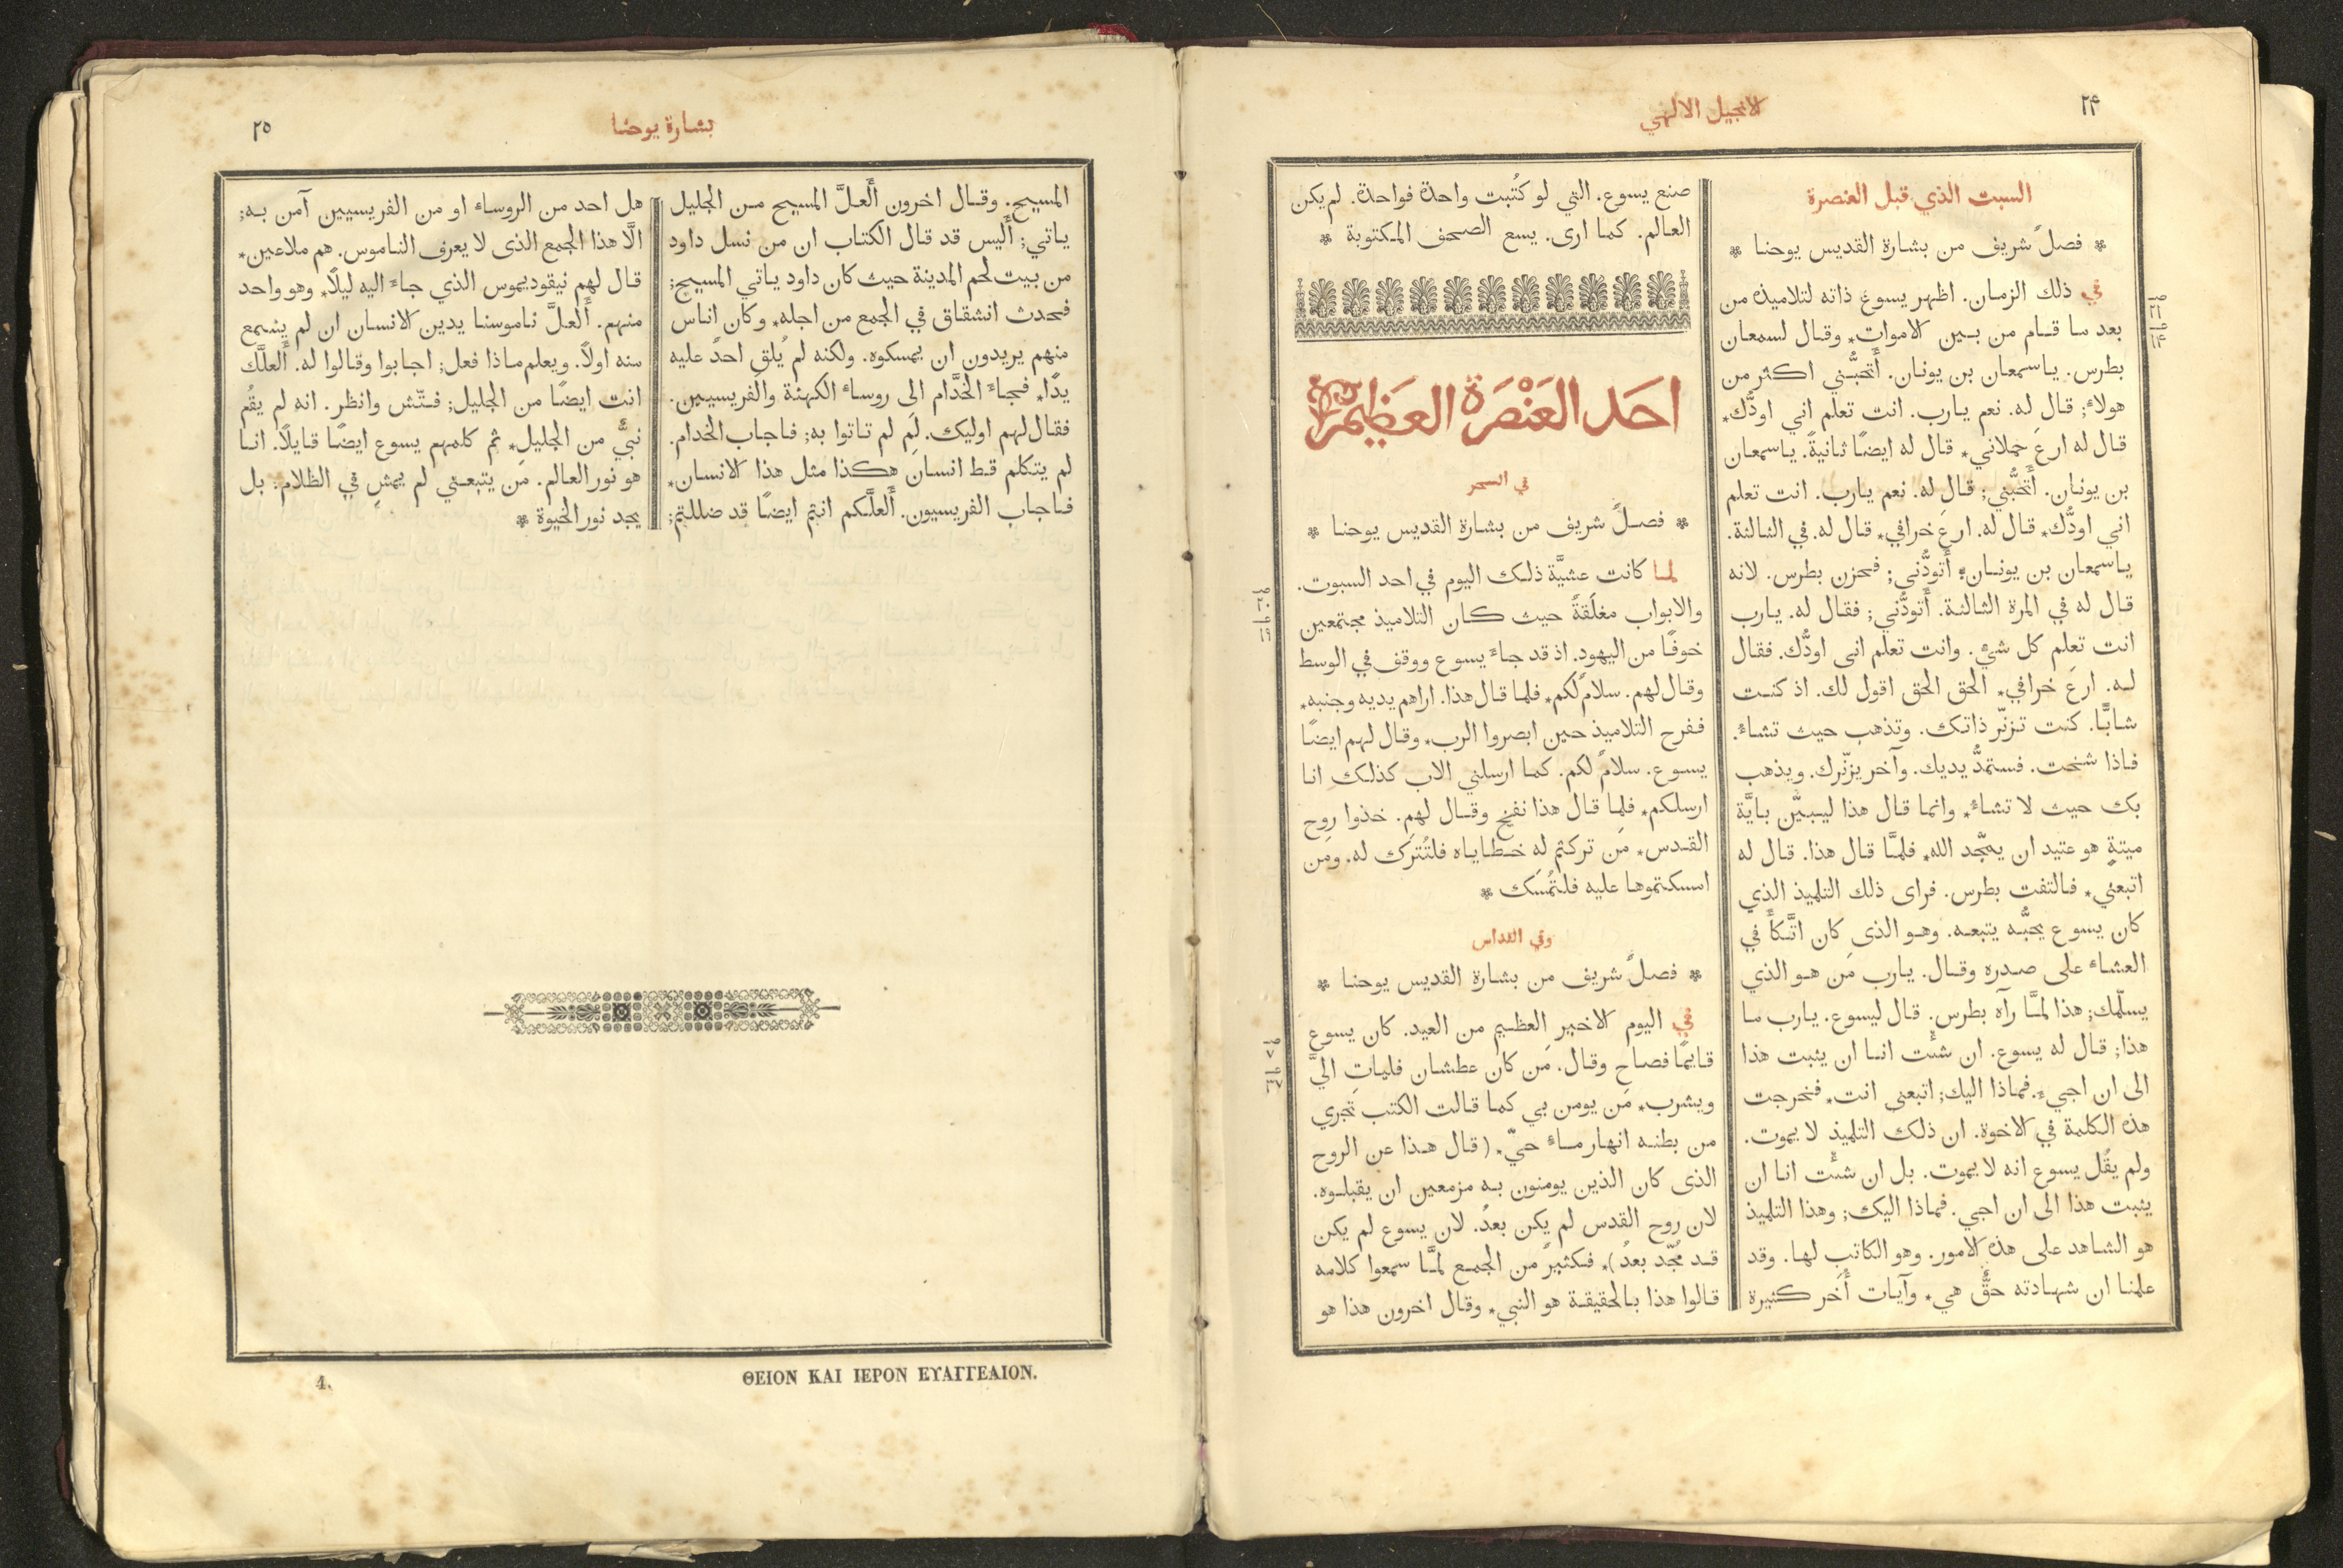 ٢٤
الانجيل الالهي
السبت الذي قبل العنصرة
* فصلٌ شريف من بشارة القديس يوحنا *
في ذلك الزمان. اظهر يسوع ذاته لتلاميذه من
بعد ما قام من بين الاموات* وقال لسمعان
بطرس. ياسمعان بن يونان. أَتحبُّني اكثر من
هولاءِ; قال له. نعم يارب. انت تعلم اني اودُّك*
قال له ارعَ حملاني* قال له ايضًا ثانيةً. ياسمعان
بن يونان. أَتحبُّني; قال له. نعم يارب. انت تعلم
اني اودُّك* قال له. ارعَ خرافي* قال له. في الثالثة.
ياسمعان بن يونان* أَتودُّني; فحزن بطرس. لانه
قال له في المرة الثالثة. أَتودُّني; فقال له. يارب
انت تعلم كل شيءٍ. وانت تعلم انى اودُّك. فقال
له. ارعَ خرافي* الحق الحق اقول لك. اذ كنت
شابًّا. كنت تزنّر ذاتك. وتذهب حيث تشاءُ.
فاذا شخت. فستمدُّ يديك. وآخر يزنّرك. ويذهب
بك حيث لا تشاءُ* وانما قال هذا ليبيّن باَيَّة
ميتةٍ هو عتيد ان يمجّد الله* فلمَّا قال هذا. قال له
اتبعني* فالتفت بطرس. فراى ذلك التلميذ الذي
كان يسوع يحبُّه يتبعه. وهو الذى كان اتَّكأَ في
العشاء على صدره وقال. يارب مَن هو الذي
يسلّمك; هذا لمَّا رآه بطرس. قال ليسوع. يارب ما
هذا; قال له يسوع. ان شئْت انا ان يثبت هذا
الى ان اجيء. فماذا اليك; اتبعنى انت* فخرجت
هذه الكلمة في الاخوة. ان ذلك التلميذ لا يموت.
ولم يقُل يسوع انه لا يموت. بل ان شئْت انا ان
يثبت هذا الى ان اجي. فماذا اليك; وهذا التلميذ
هو الشاهد على هذه الامور. وهو الكاتب لها. وقد
علمنا ان شهادته حقٌّ هي* وآيات أُخَر كثيرة
صنع يسوع. التي لو كُتبت واحدة فواحدة. لم يكن
العالم. كما ارى. يسع الصحف المكتوبة *
احَد العَنْصَرَة العَظِيمَة
في السحر
* فصلٌ شريف من بشارة القديس يوحنا *
لما كانت عشيَّة ذلك اليوم في احد السبوت.
والابواب مغلَقةٌ حيث كان التلاميذ مجتمعين
خوفًا من اليهود. اذ قد جاءَ يسوع ووقف في الوسط
وقال لهم. سلامٌ لكم* فلما قال هذا. اراهم يديه وجنبه*
ففرح التلاميذ حين ابصروا الرب* وقال لهم ايضًا
يسوع. سلامٌ لكم. كما ارسلني الاب كذلك انا
ارسلكم* فلما قال هذا نفخ وقال لهم. خذوا روح
القدس* مَن تركتم له خطاياه فلتُترَك له. ومَن
امسكتموها عليه فلتُمسَك *
وفي القداس
* فصلٌ شريف من بشارة القديس يوحنا *
في اليوم الاخير العظيم من العيد. كان يسوع
قايمًا فصاح وقال. مَن كان عطشان فليات اليَّ
ويشرب* مَن يومن بي كما قالت الكتب تجري
من بطنه انهار ماءٍ حيّ* (قال هذا عن الروح
الذى كان الذين يومنون به مزمعين ان يقبلوه.
لان روح القدس لم يكن بعدُ. لان يسوع لم يكن
قد مُجّد بعدُ)* فكثيرٌ من الجمع لمَّا سمعوا كلامه
قالوا هذا بالحقيقة هو النبي* وقال اخرون هذا هو
بشارة يوحنا
٢٥
المسيح. وقال اخرون أَلعلَّ المسيح من الجليل
ياتي; أَليس قد قال الكتاب ان من نسل داود
من بيت لحم المدينة حيث كان داود ياتي المسيح;
فحدث انشقاق في الجمع من اجله* وكان اناس
منهم يريدون ان يمسكوه. ولكنه لم يُلقِ احدٌ عليه
يدًا* فجاءَ الخدَّام الى روساءِ الكهنة والفريسيين.
فقال لهم اوليك. لِمَ لم تاتوا به; فاجاب الخدام.
لم يتكلم قط انسان هكذا مثل هذا الانسان*
فاجاب الفريسيون. أَلعلَّكم انتم ايضًا قد ضللتم;
هل احد من الروساءِ او من الفريسيين آمن به;
الَّا هذا الجمع الذى لا يعرف الناموس. هم ملاعين*
قال لهم نيقوديموس الذي جاءَ اليه ليلًا* وهو واحد
منهم. أَلعلَّ ناموسنا يدين الانسان ان لم يسمع
منه اولاً. ويعلم ماذا فعل; اجابوا وقالوا له. أَلعلَّك
انت ايضًا من الجليل; فتّش وانظر. انه لم يقُم
نبيٌّ من الجليل* ثم كلمهم يسوع ايضًا قايلًا. انا
هو نور العالم. مَن يتبعني لم يمشِ في الظلام. بل
يجد نور الحيوة *
ΘΕΙΟΝ ΚΑΙ ΙΕΡΟΝ ΕΥΑΓΓΕΛΙΟΝ.
4.